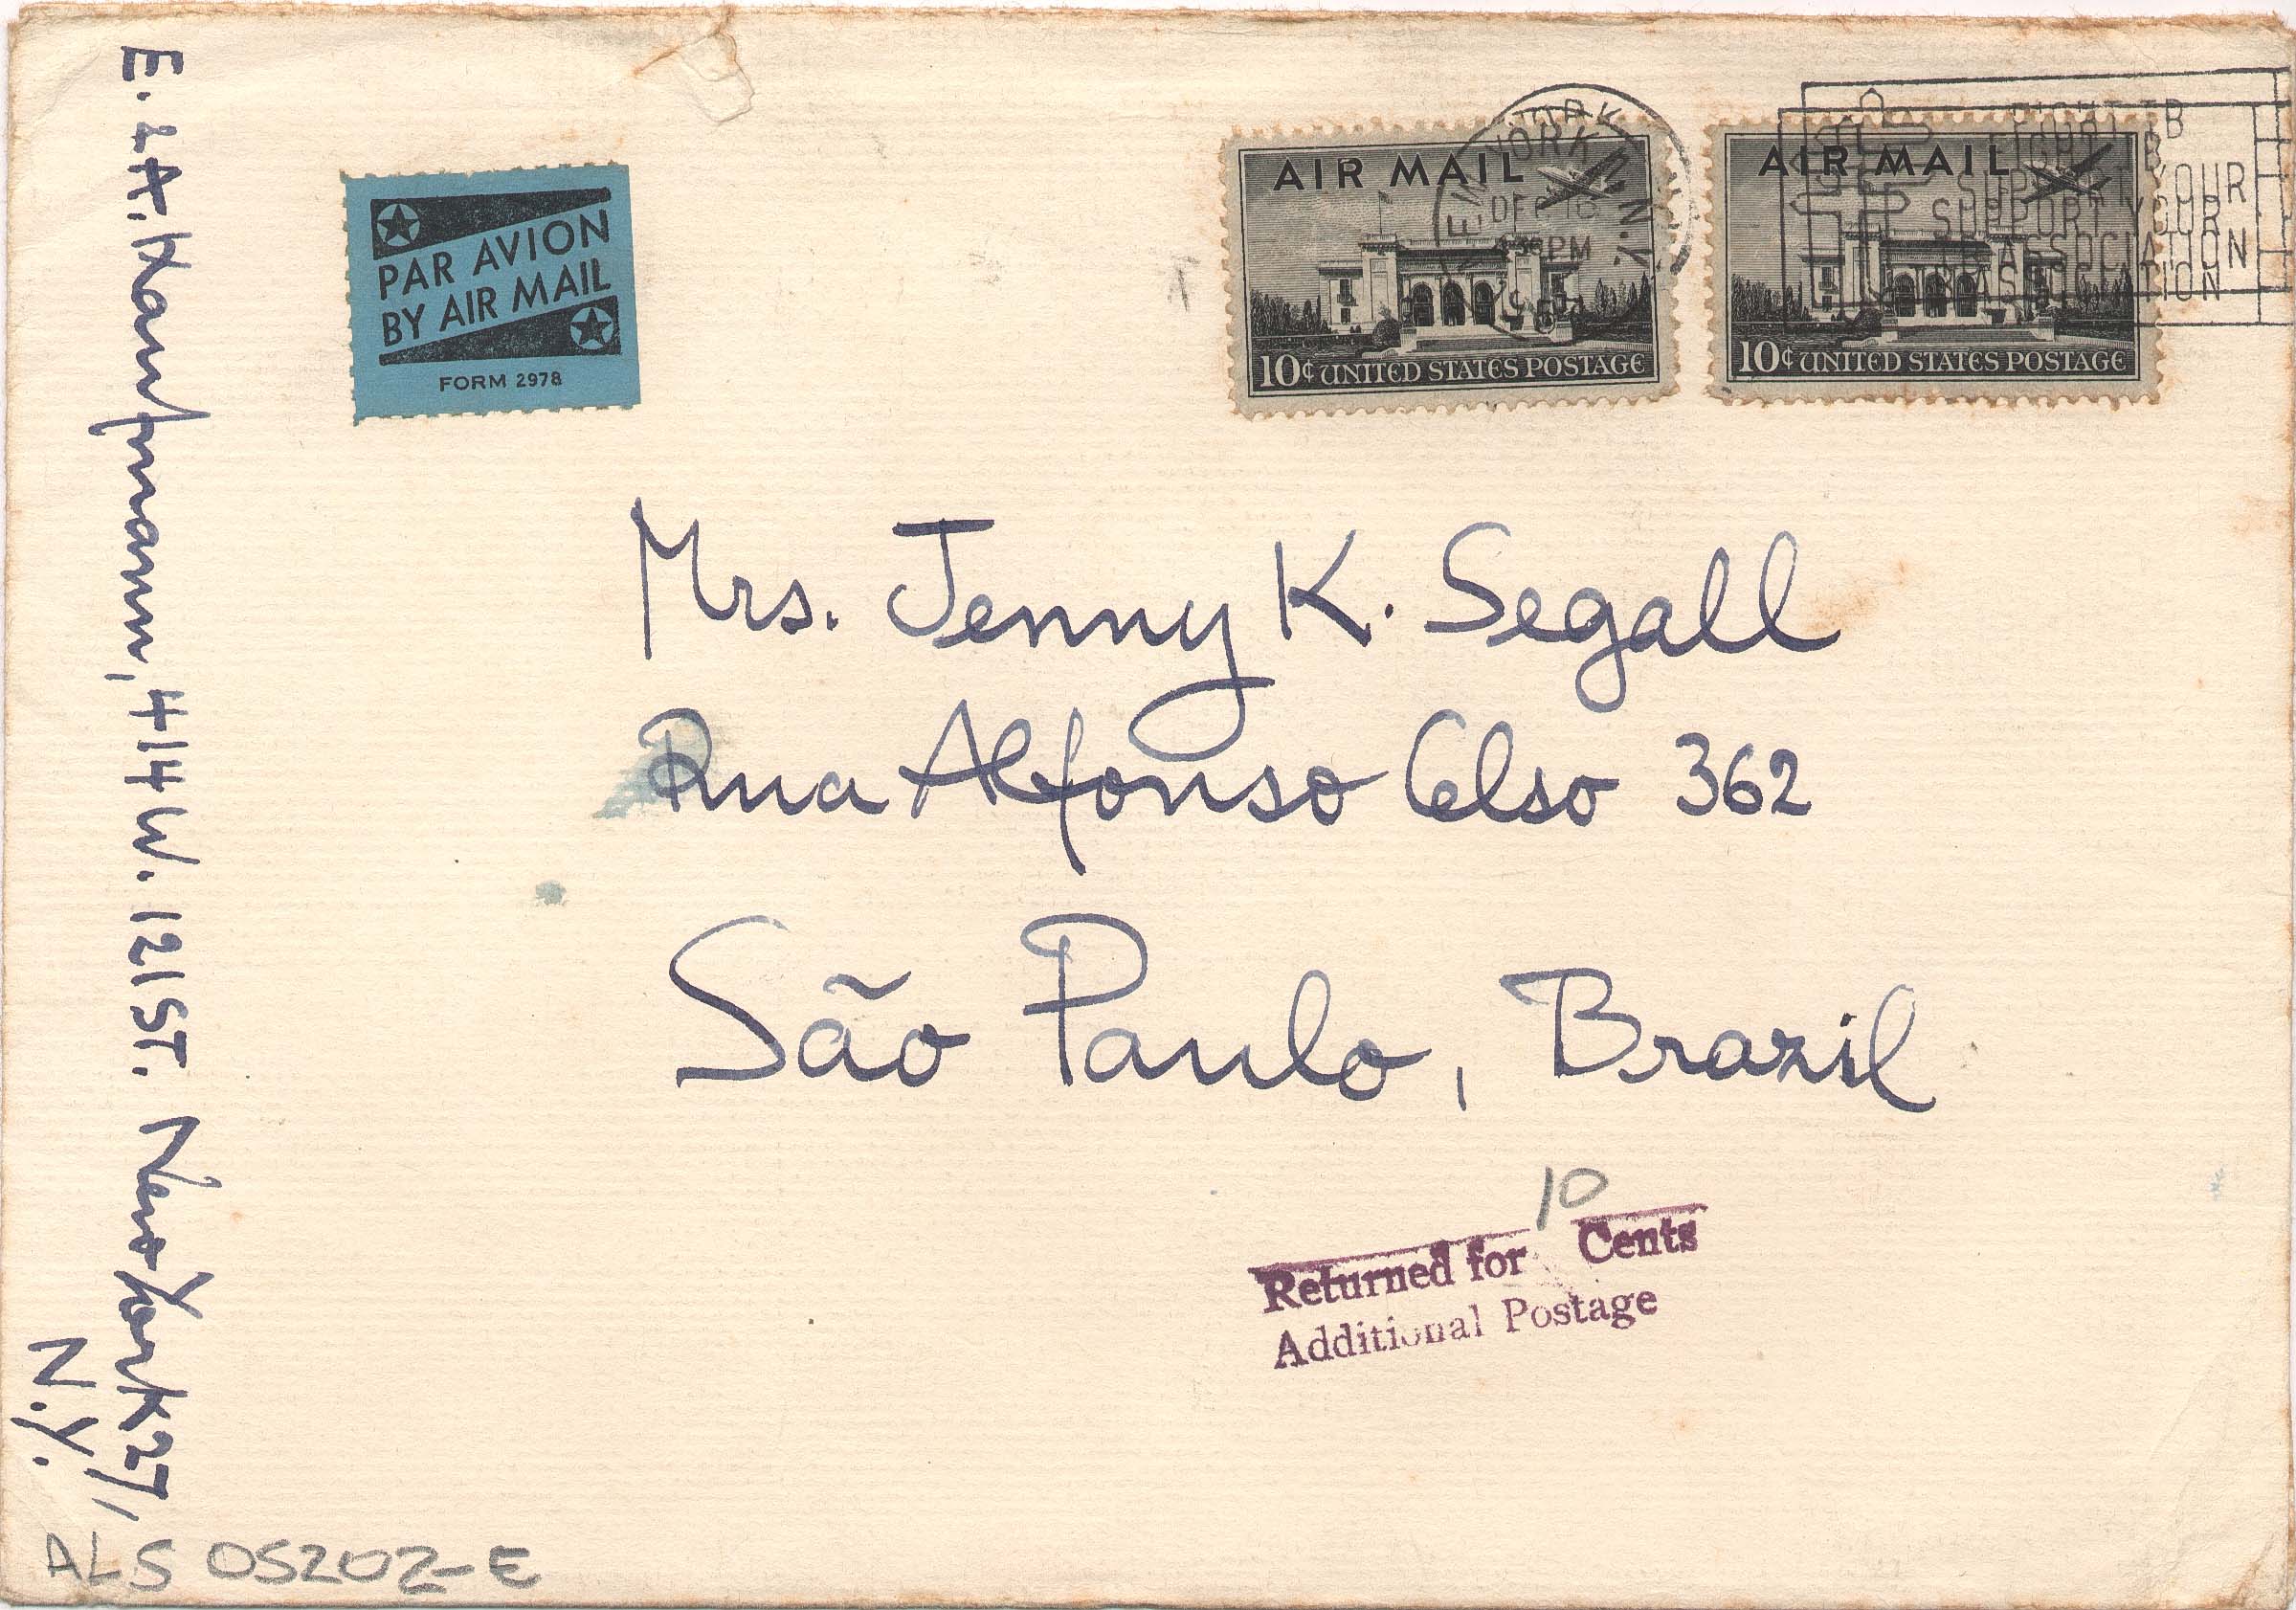 E. M. Kaufmann, 414 W. 121 ST. New York 27,
N.Y.
PAR AVION
BY AIR MAIL
FORM 2978
AIR MAIL
10¢ UNITED STATES POSTAGE
AIR MAIL
10¢ UNITED STATES POSTAGE
NEW YORK, N.Y.
PM
FIGHT TB
SUPPORT YOUR
TB ASSOCIATION
Mrs. Jenny K. Segall
Rua Alfonso Celso 362
São Paulo, Brazil
Returned for 10 Cents
Additional Postage
ALS 05202-E